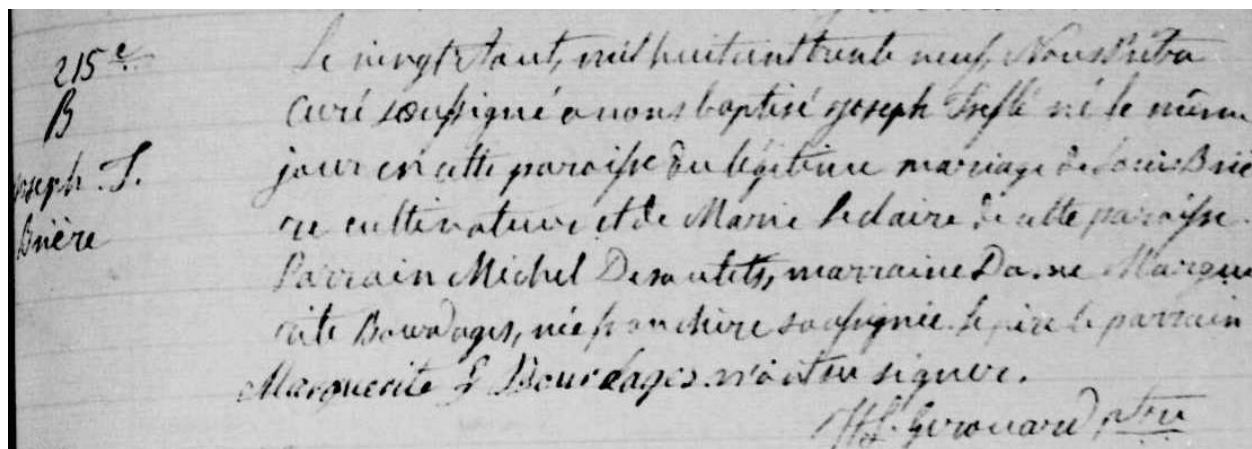 215e
B
Joseph T.
Brière
Le vingt d'aout, mil huit cent trente neuf, Nous Prêtre
curé soussigné avons baptisé Joseph Trefflé né le même
jour en cette paroisse du légitime mariage de Louis Briè
re cultivateur et de Marie Leclaire de cette paroisse.
Parrain Michel Desautels, marraine Dame Margue
rite Bourdages, née Franchère soussignée. Le père le parrain
Marguerite F Bourdages n'ont su signer.
Girouard Ptre